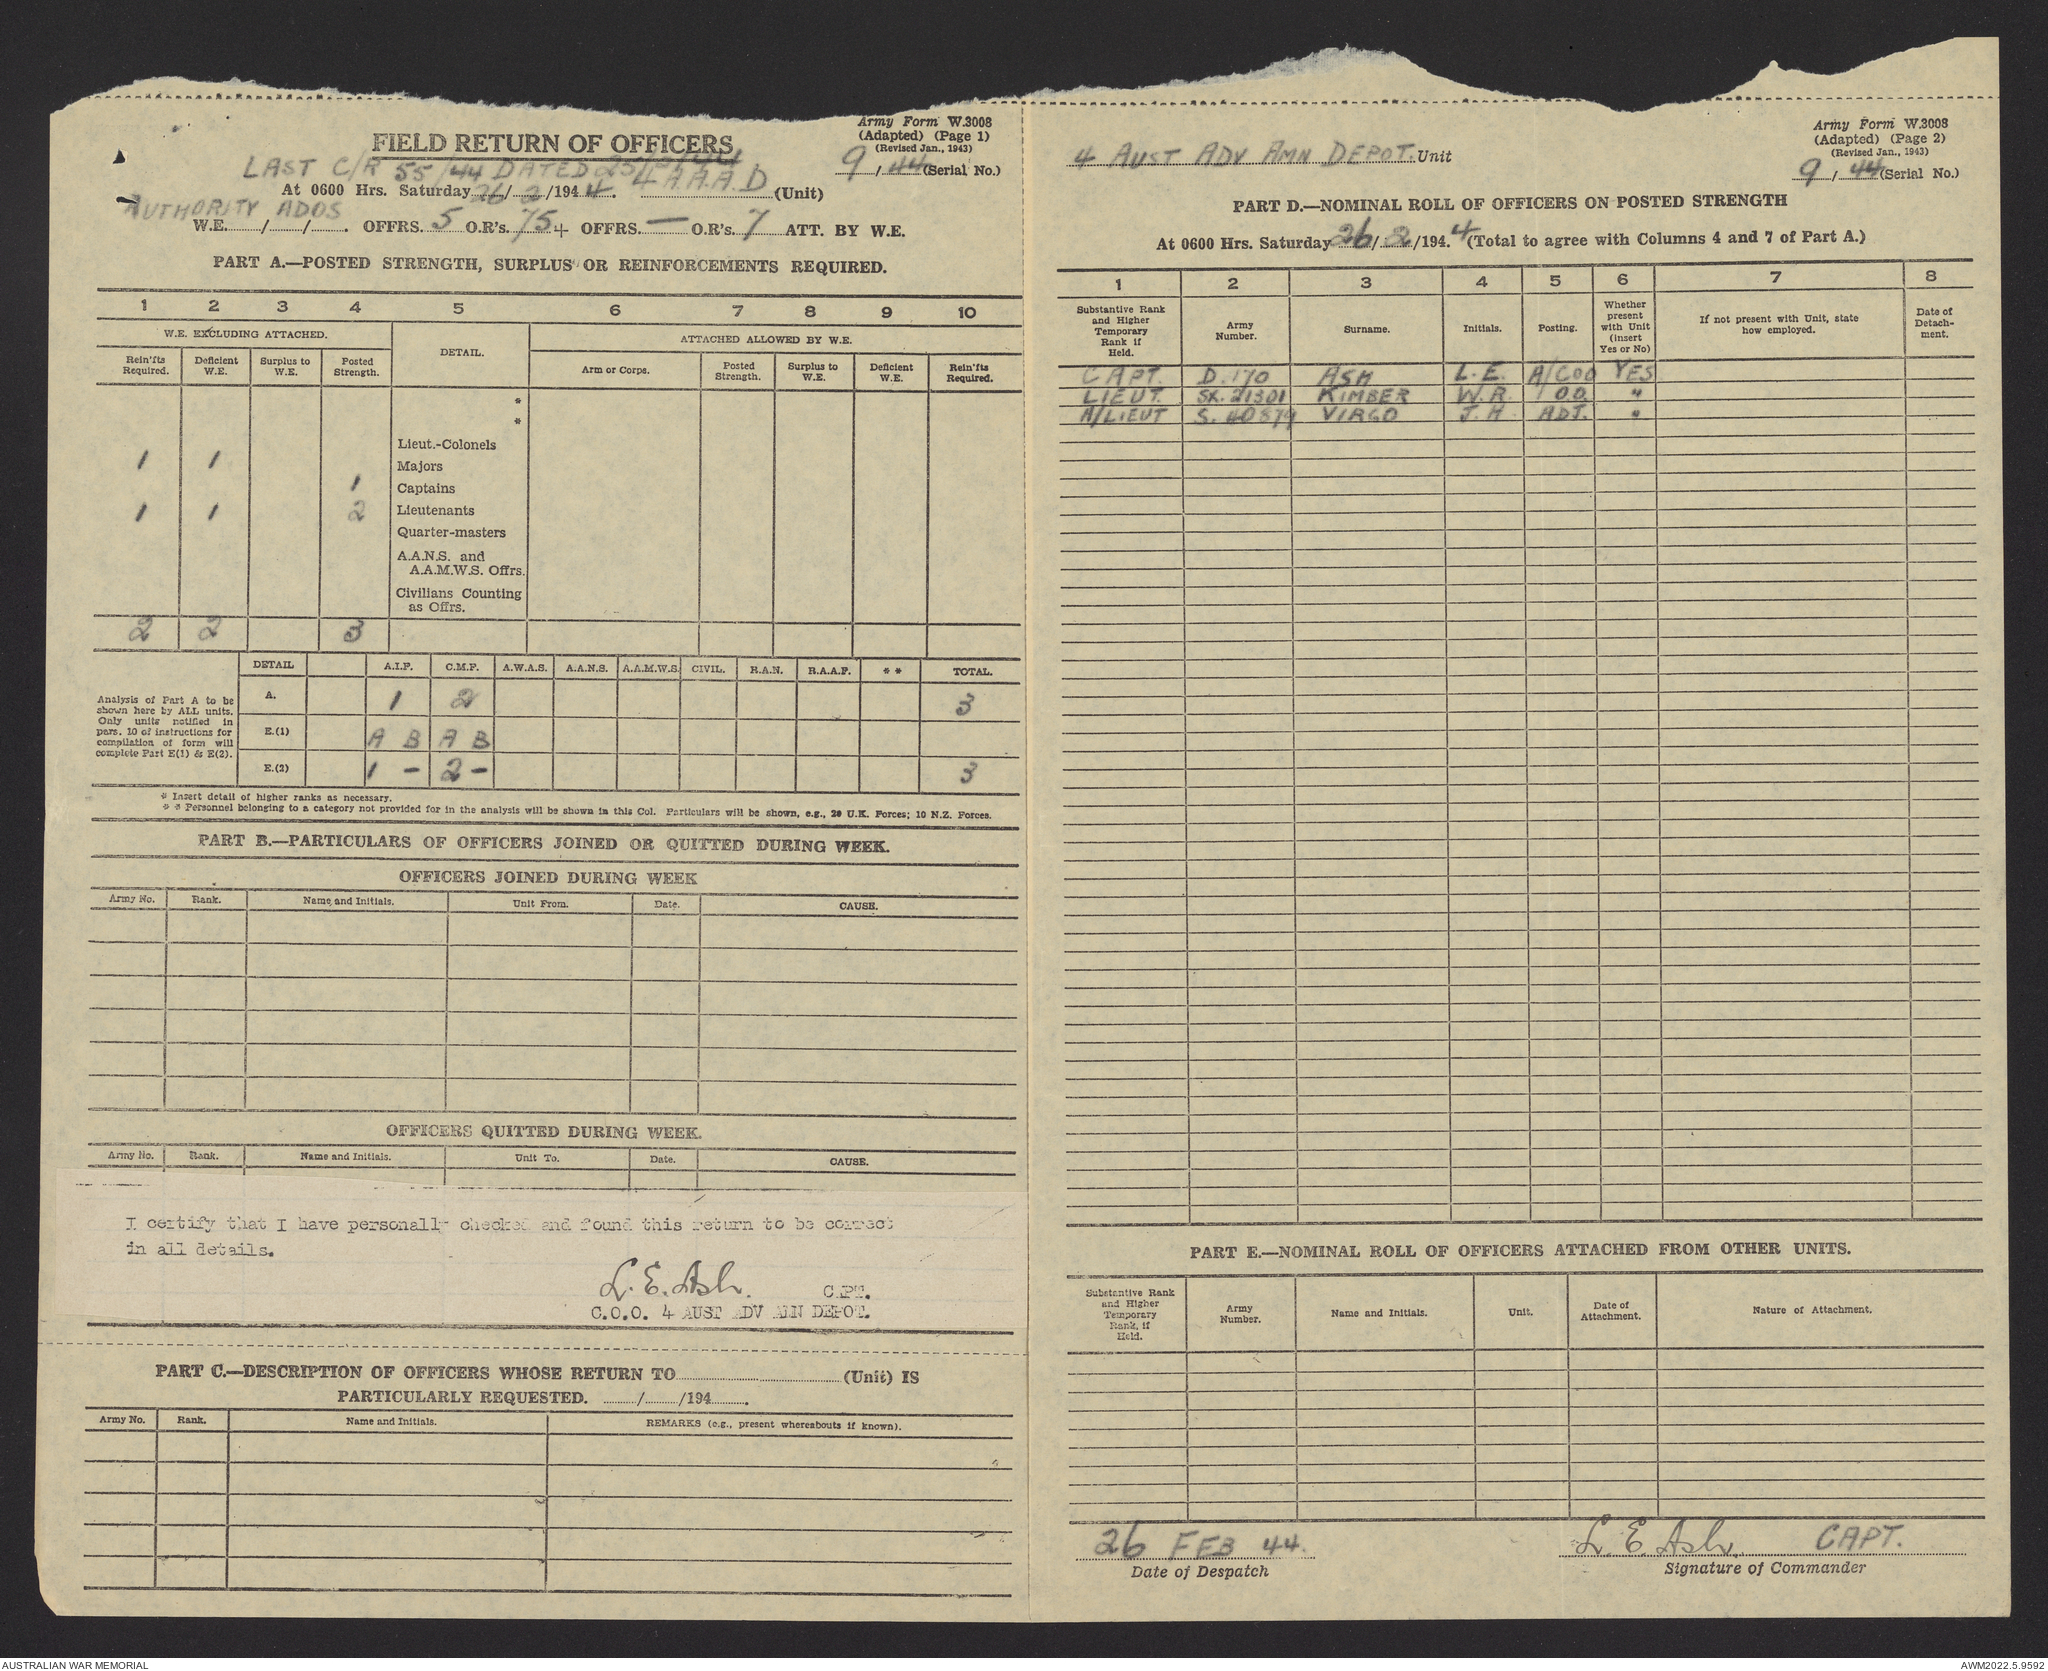 FIELD RETURN OF OFFICERS
Army Form W.3008
(Adapted) (Page 1)
(Revised Jan., 1943)
9 / 44 (Serial No.)
LAST C/R 55/44 DATED 25/2/44
At 0600 Hrs. Saturday 26/2/1944. 4 A.A.A.D (Unit)
AUTHORITY ADOS
W.E. / / . OFFRS. 5 O.R's. 75 + OFFRS. — O.R's. 7 ATT. BY W.E.
PART A.—POSTED STRENGTH, SURPLUS OR REINFORCEMENTS REQUIRED.
1 2 3 4 5 6 7 8 9 10
W.E. EXCLUDING ATTACHED. DETAIL. ATTACHED ALLOWED BY W.E.
Rein'fts Required. Deficient W.E. Surplus to W.E. Posted Strength. Arm or Corps. Posted Strength. Surplus to W.E. Deficient W.E. Rein'fts Required.
*
*
Lieut.-Colonels
1 1 Majors
1 Captains
1 1 2 Lieutenants
Quarter-masters
A.A.N.S. and
A.A.M.W.S. Offrs.
Civilians Counting
as Offrs.
2 2 3
DETAIL A.I.F. C.M.F. A.W.A.S. A.A.N.S. A.A.M.W.S. CIVIL. R.A.N. R.A.A.F. * * TOTAL.
Analysis of Part A to be
shown here by ALL units.
Only units notified in
pars. 10 of instructions for
compilation of form will
complete Part E(1) & E(2).
A. 1 2 3
E.(1) A B A B
E.(2) 1 - 2 - 3
* Insert detail of higher ranks as necessary.
* * Personnel belonging to a category not provided for in the analysis will be shown in this Col. Particulars will be shown, e.g., 20 U.K. Forces; 10 N.Z. Forces.
PART B.—PARTICULARS OF OFFICERS JOINED OR QUITTED DURING WEEK.
OFFICERS JOINED DURING WEEK
Army No. Rank. Name and Initials. Unit From. Date. CAUSE.
OFFICERS QUITTED DURING WEEK.
Army No. Rank. Name and Initials. Unit To. Date. CAUSE.
I certify that I have personally checked and found this return to be correct
in all details.
L. E. Ash. CAPT.
C.O.O. 4 AUST ADV AMN DEPOT.
PART C.—DESCRIPTION OF OFFICERS WHOSE RETURN TO (Unit) IS
PARTICULARLY REQUESTED. / /194 .
Army No. Rank. Name and Initials. REMARKS (e.g., present whereabouts if known).
4 AUST ADV AMN DEPOT. Unit
Army Form W.3008
(Adapted) (Page 2)
(Revised Jan., 1943)
9 / 44 (Serial No.)
PART D.—NOMINAL ROLL OF OFFICERS ON POSTED STRENGTH
At 0600 Hrs. Saturday 26/2/194.4 (Total to agree with Columns 4 and 7 of Part A.)
1 2 3 4 5 6 7 8
Substantive Rank and Higher Temporary Rank if Held. Army Number. Surname. Initials. Posting. Whether present with Unit (insert Yes or No) If not present with Unit, state how employed. Date of Detach-ment.
CAPT. D.170 ASH L.E. A/COO YES
LIEUT. SX.21301 KIMBER W.R. O.O. "
A/LIEUT S.40879 VIRGO J.H. ADJ. "
PART E.—NOMINAL ROLL OF OFFICERS ATTACHED FROM OTHER UNITS.
Substantive Rank and Higher Temporary Rank, if Held. Army Number. Name and Initials. Unit. Date of Attachment. Nature of Attachment.
26 FEB 44. L. E. Ash. CAPT.
Date of Despatch Signature of Commander
AUSTRALIAN WAR MEMORIAL AWM2022.5.9592